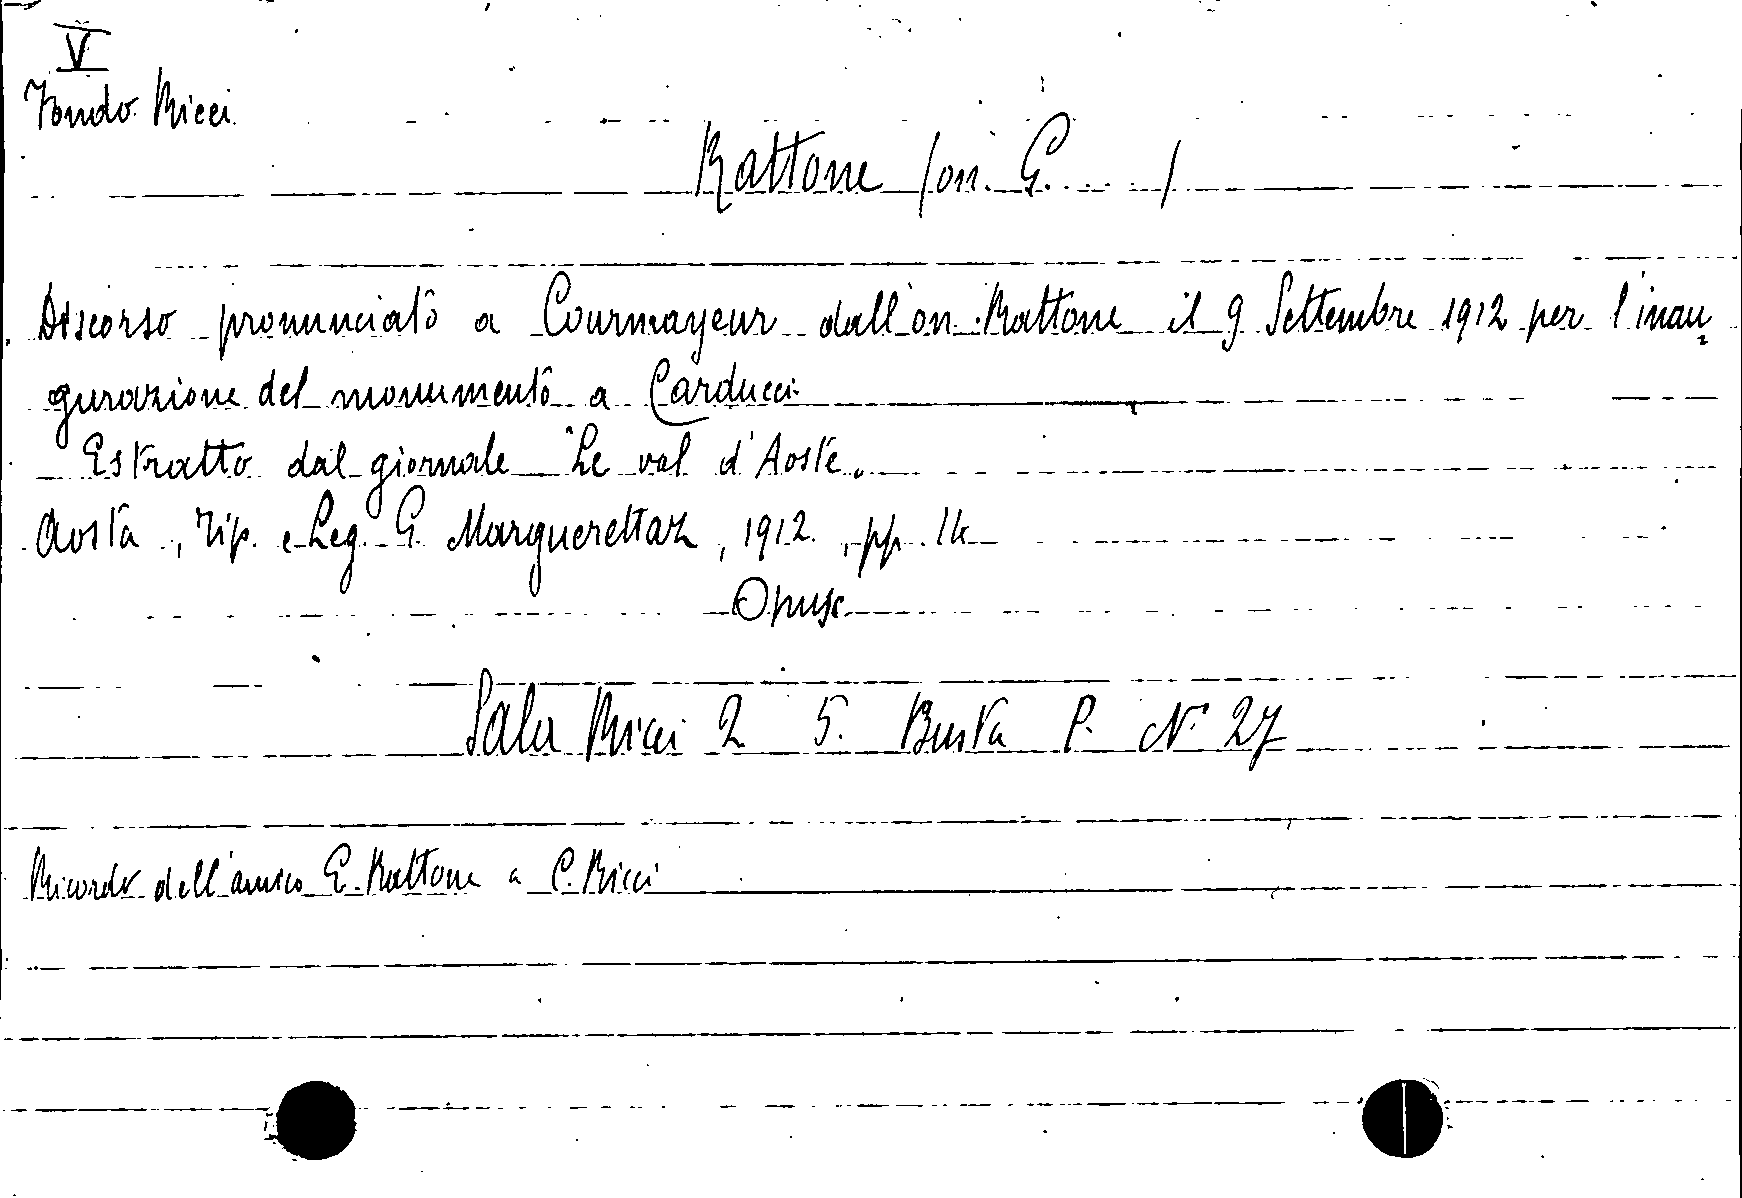 V
Fondo Ricci
Rattone (on. G. . . . )
Discorso pronunciato a Courmayeur dall'on. Rattone il 9 Settembre 1912 per l'inau=
gurazione del monumento a Carducci
Estratto dal giornale "Le val d'Aoste„
Aosta, Tip. e Leg. G. Marguerettaz, 1912, pp. 14
Opusc.
Sala Ricci 2 5. Busta P. N. 27
Ricordo dell'amico G. Rattone a C. Ricci